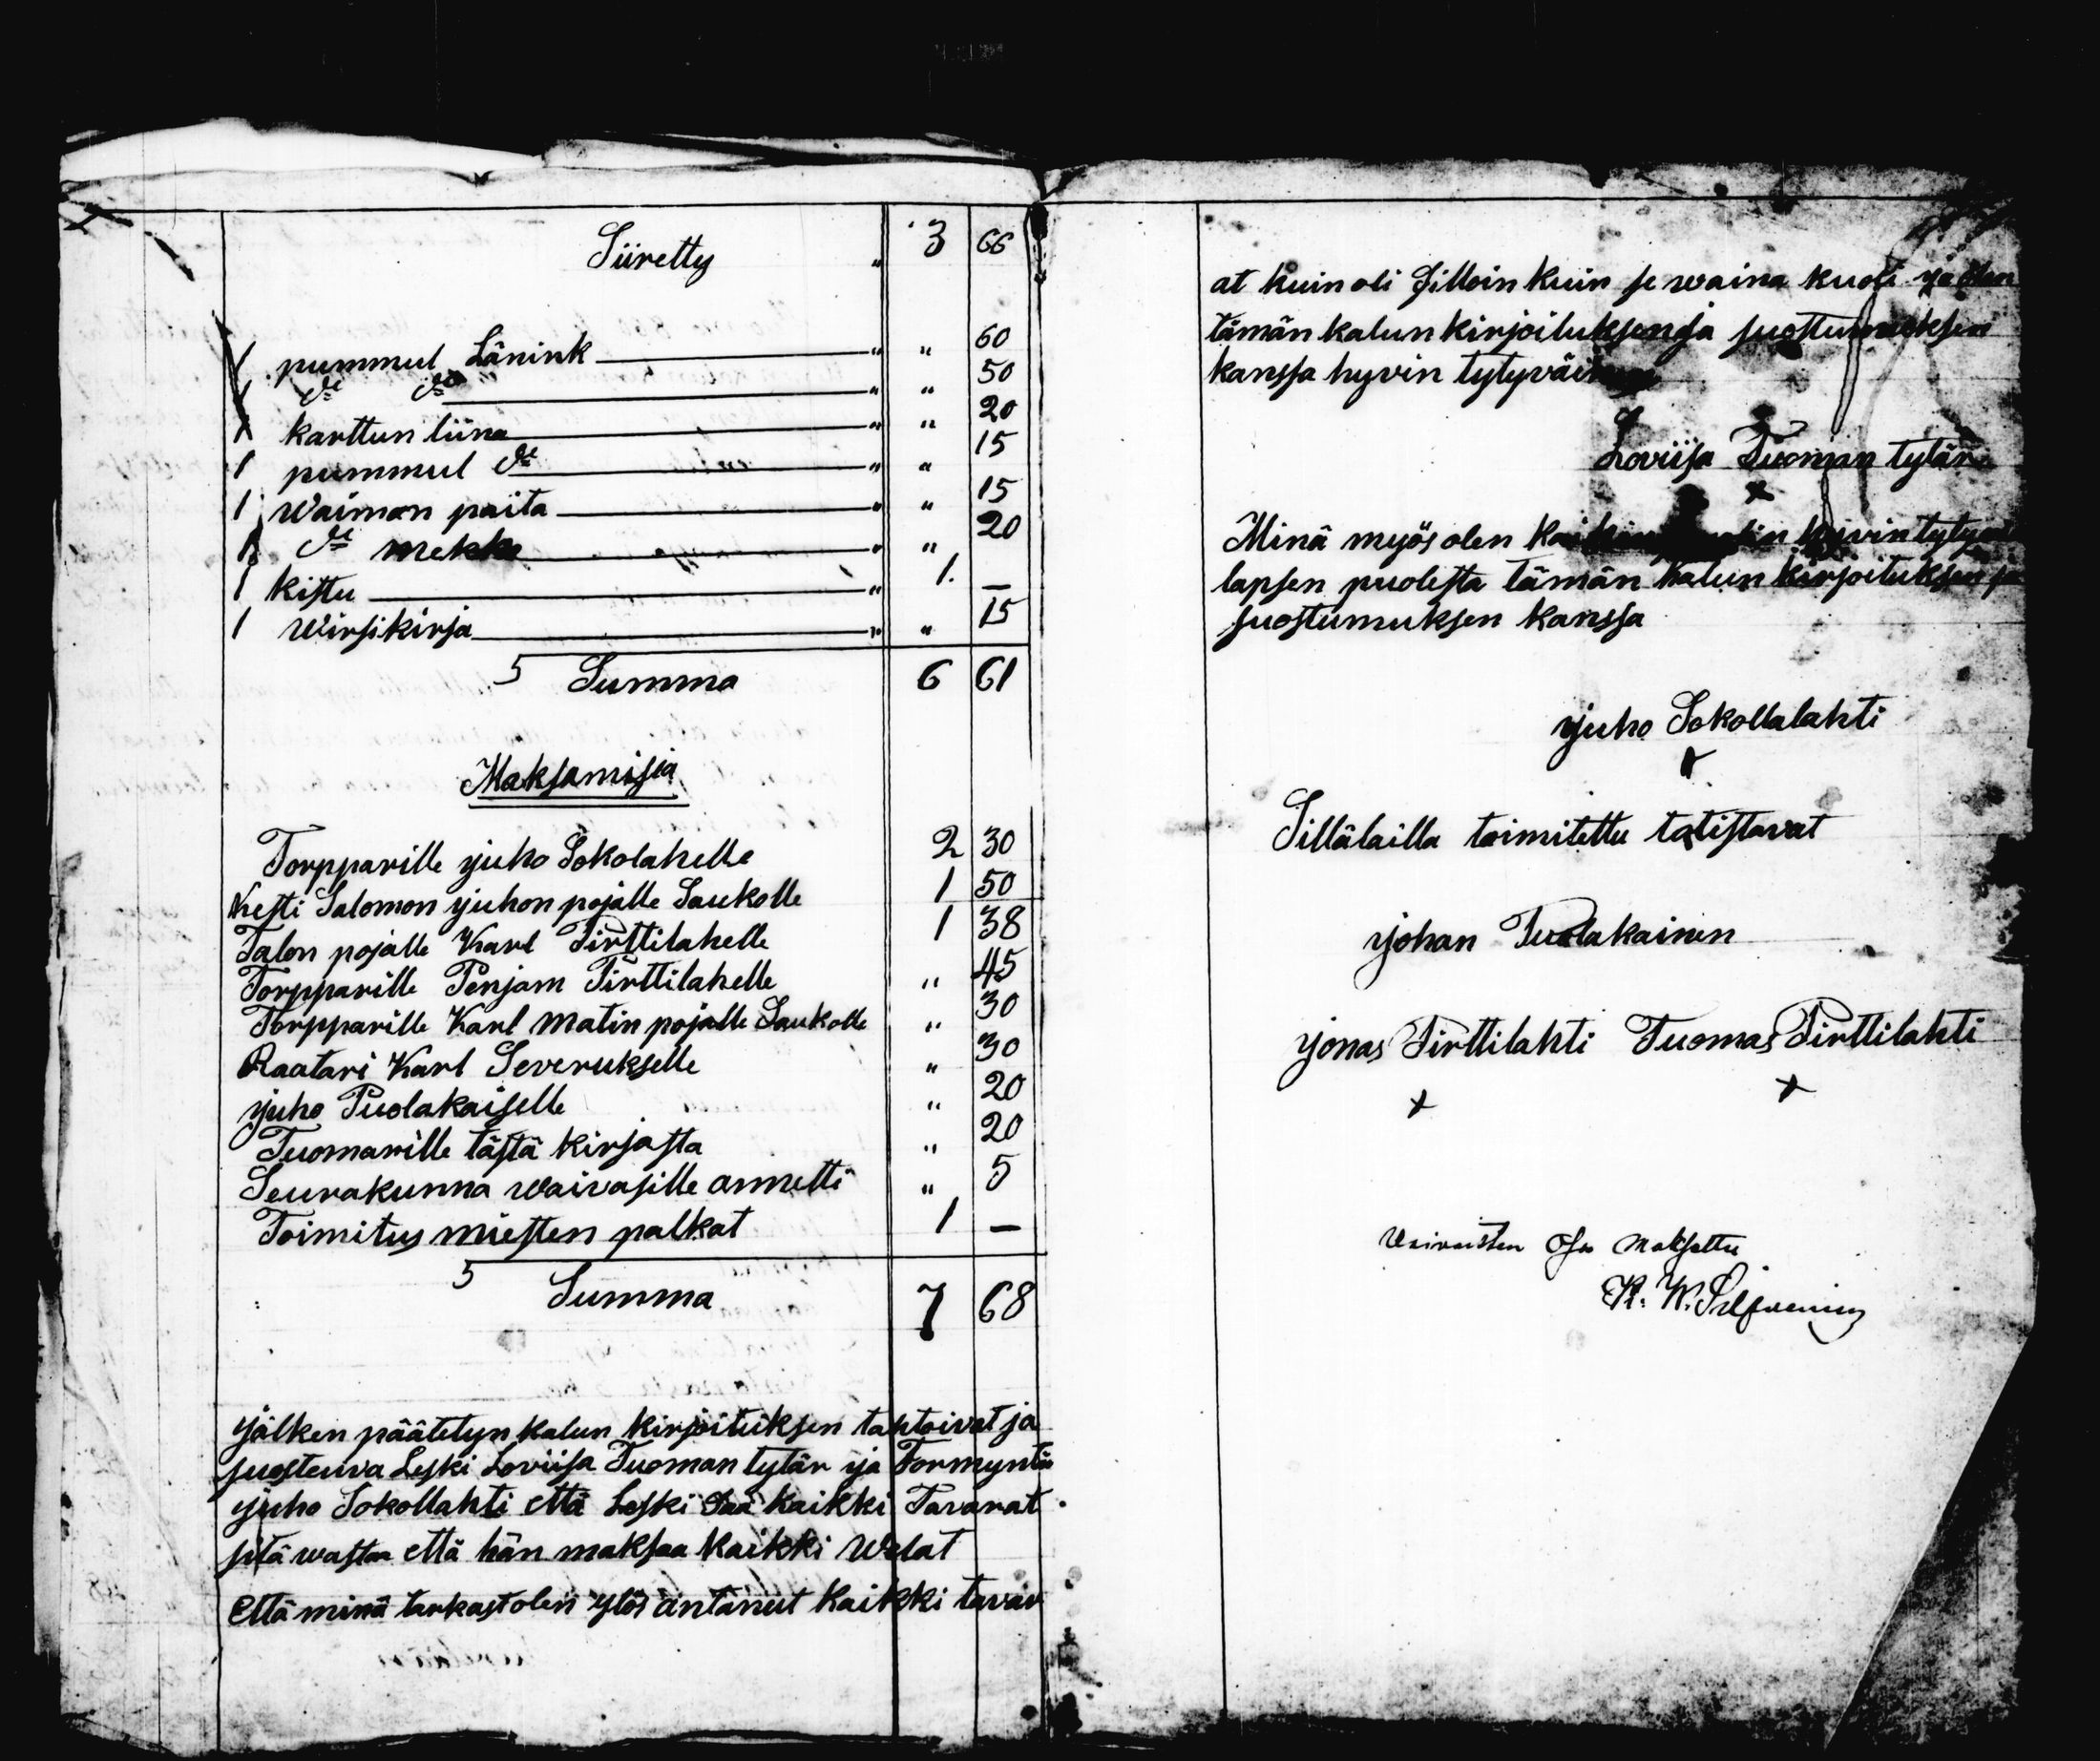 Siiretty " 3 66
1 pummul Länink " " 60
1 do do " " 50
1 karttun liina " " 20
1 pummul do " " 15
1 Waimon paita " " 15
1 do mekko " " 20
1 kistu " 1. —
1 Wirsikirja " " 15
S Summa 6 61
Maksamisia
Torpparille juho Sokolahelle 2 30
Kesti Salomon juhon pojalle Saukolle 1 50
Talon pojalle Karl Pirttilahelle 1 38
Torpparille Penjam Pirttilahelle " 45
Torpparille Karl Matin pojalle Saukolle " 30
Raatari Karl Severukselle " 30
juho Puolakaiselle " 20
Tuomarille tästä kirjasta " 20
Seurakunna waivasille annetti " 5
Toimitus miesten palkat 1 —
S Summa 7 68
jälken päätetyn kalun kirjoituksen tahtoivat ja
suosteuva Leski Loviisa Tuoman tytär ja Formyntä
juho Sokollahti että Leski saa kaikki Tavarat
sitä wastan että hän maksaa kaikki Welat
että minä tarkast olen ylös antanut kaikki tavar
at kuin oli silloin kuin se waina kuoli ja olen
tämän kalun kirjoiluksen ja suostumuksen
kanssa hyvin
Loviisa Tuoman tytär
x
Minä myös olen hyvin
lapsen puolesta tämän kalun kirjoituksen ja
suostumuksen kanssa
juho Sokollalahti
x
Sillälailla toimitettu totistavat
johan Puolakainen
jonas Pirttilahti Tuomas Pirttilahti
x x
Vaivaisten Osa Maksettu
K. W.